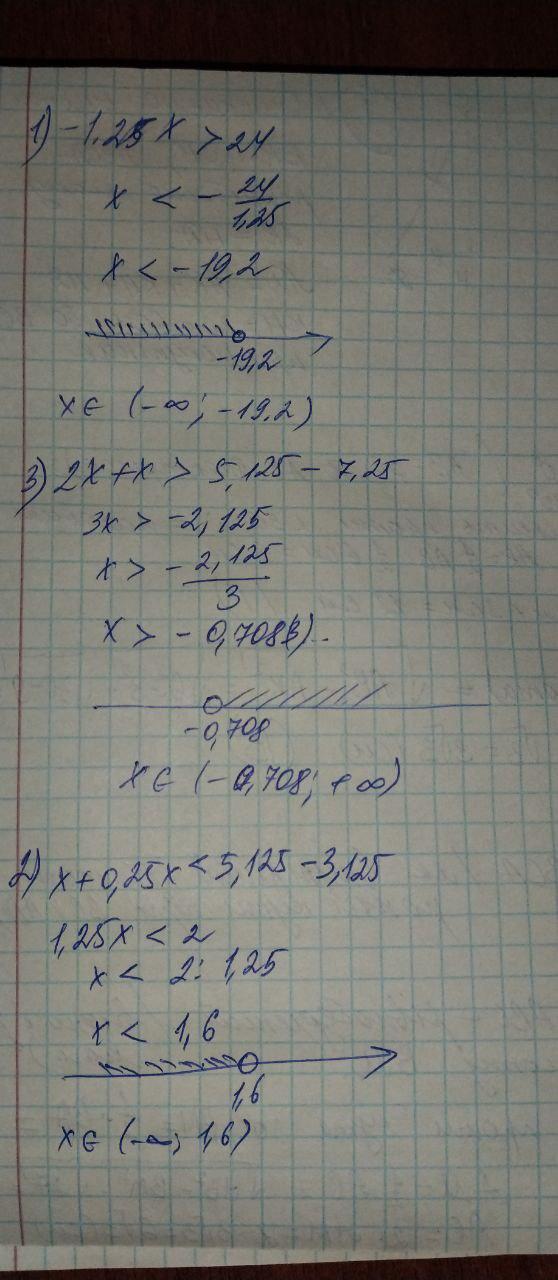 1) -1.25x > 24
x < - 24/1,25
x < -19,2
-19,2
x∈ (-∞; -19.2)
3) 2x+x > 5,125 - 7,25
3x > -2,125
x > - 2,125/3
x > - 0,708(3)
-0,708
x∈ (-0,708; +∞)
2) x+0,25x < 5,125 - 3,125
1,25x < 2
x < 2:1,25
x < 1,6
1,6
x∈ (-∞; 1,6)